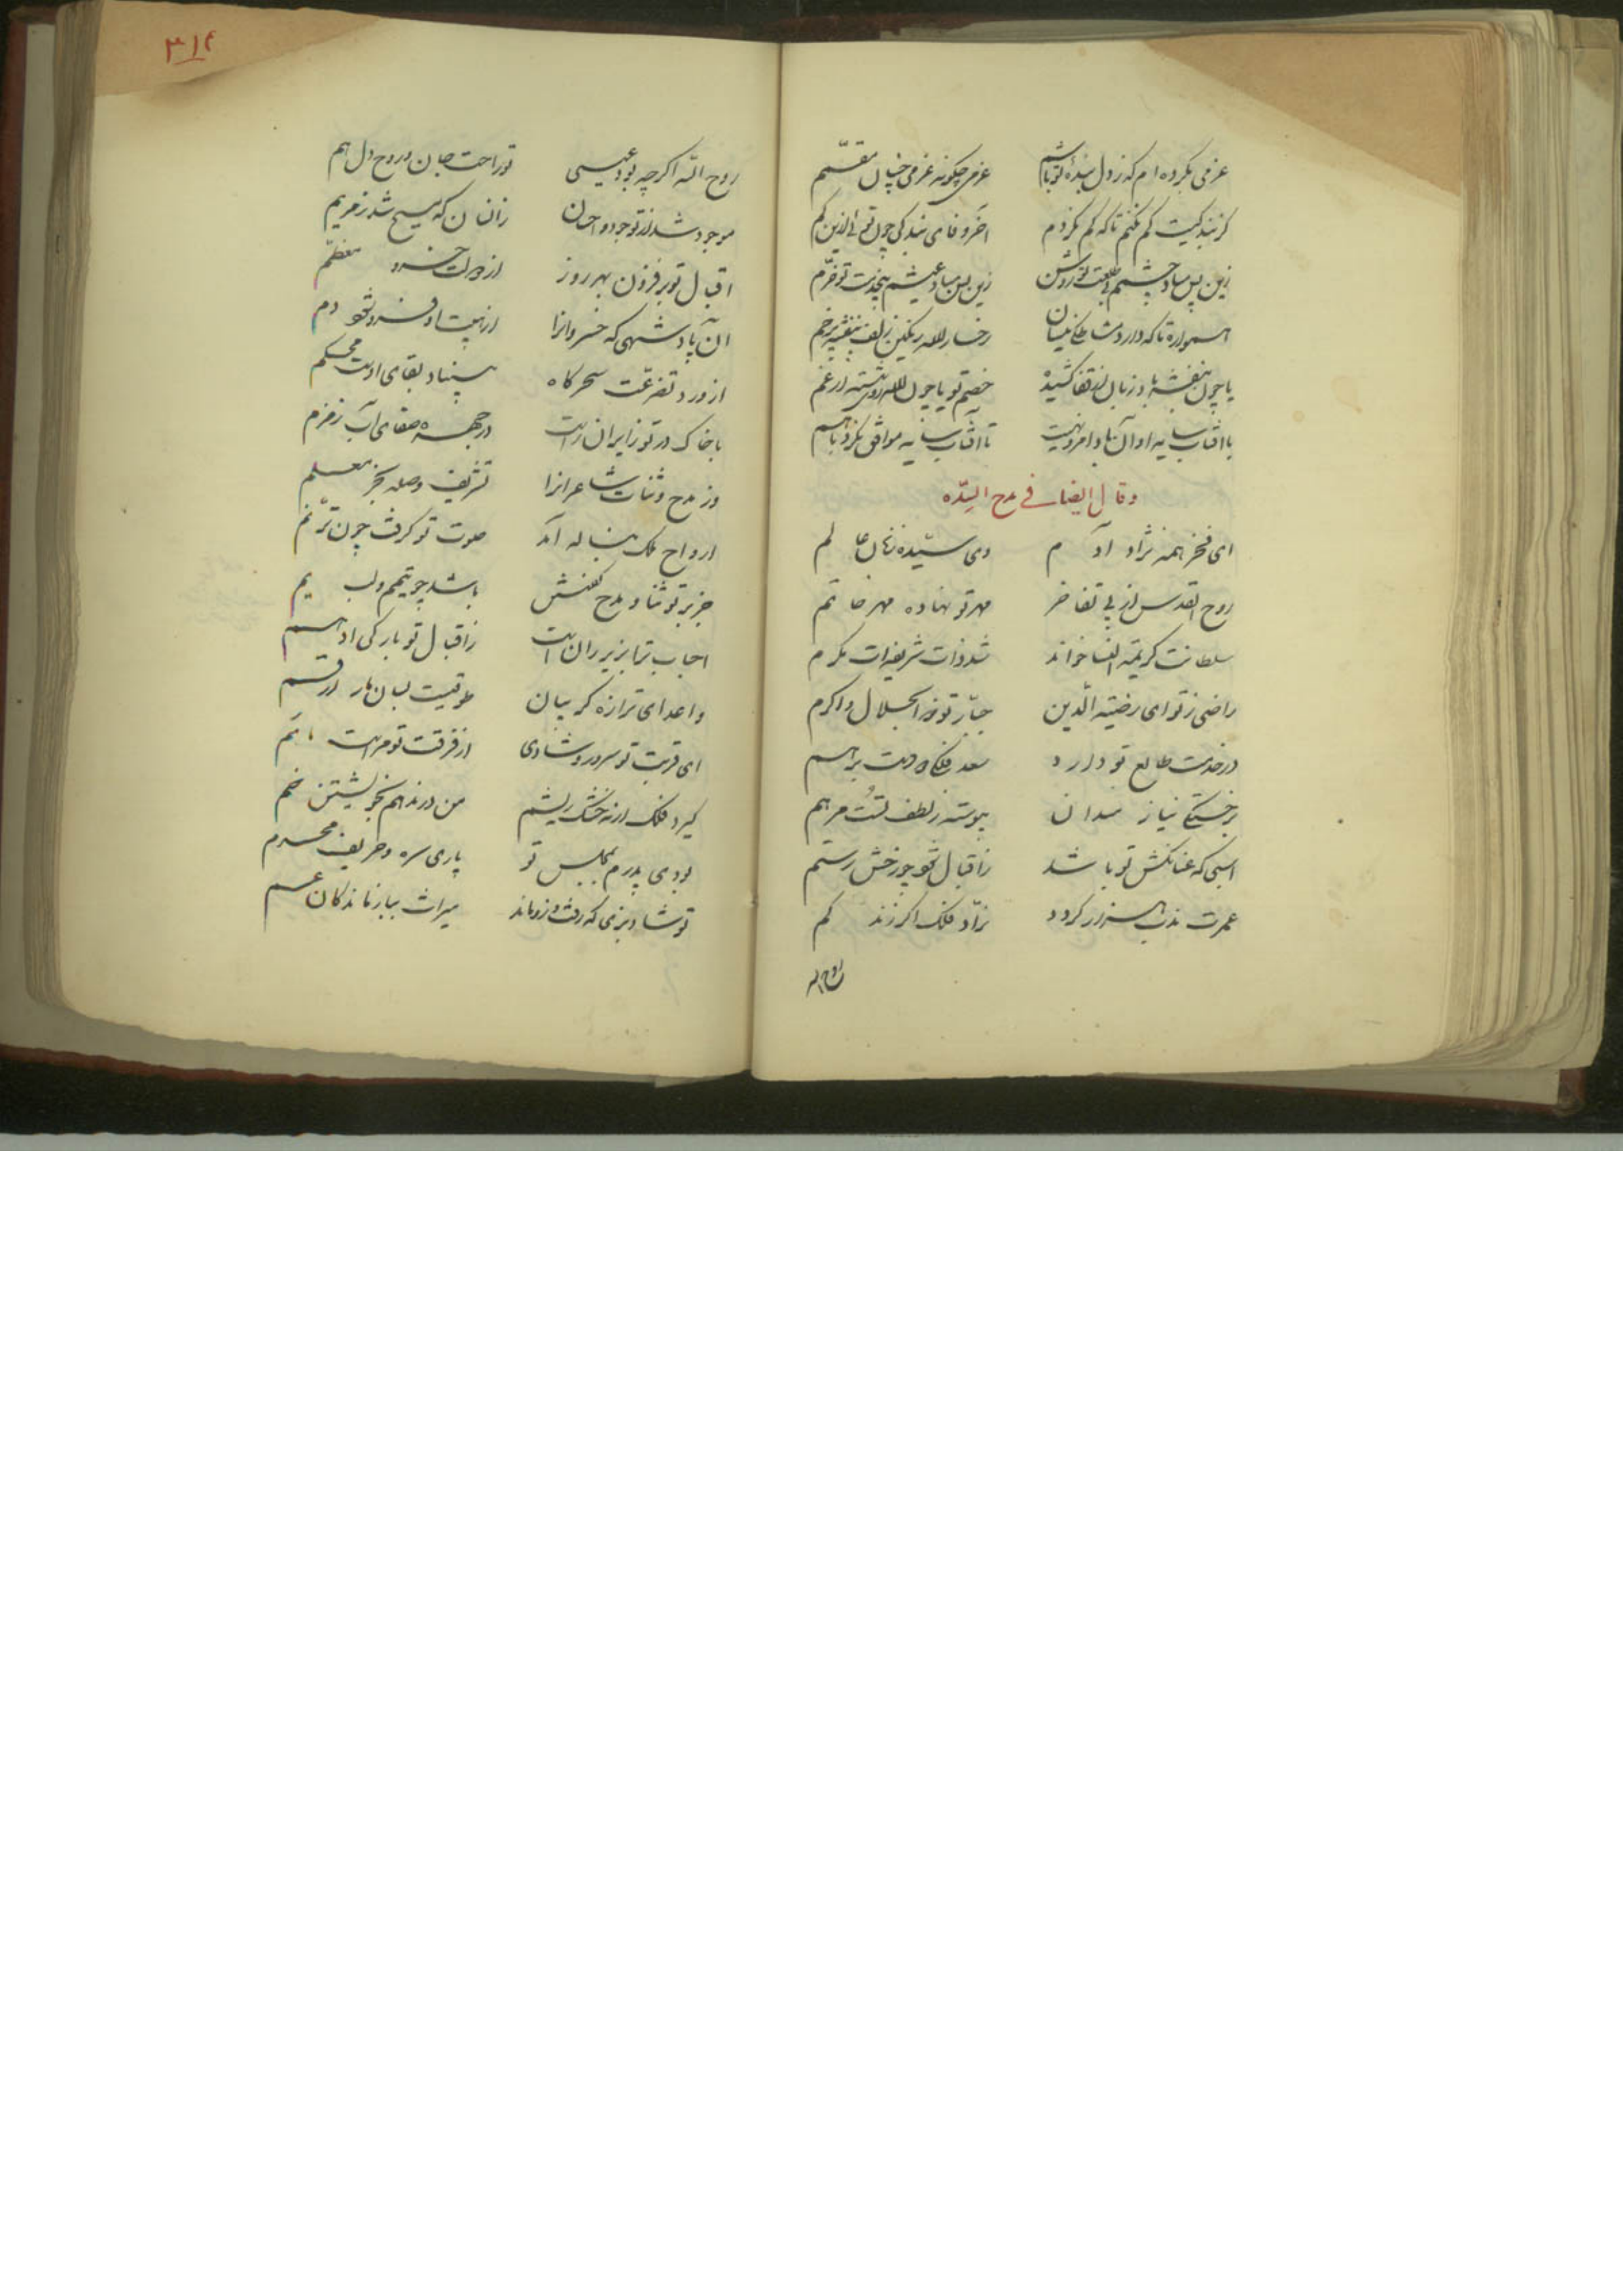 عزمی بکرده‌ام که ز دل بنده تو باشم عزمی چگونه عزمی چنان مقسّم
گر بندگیت کم کنم تا که کم نگردم آخر وفای بندگی چون توئی ازین کم
زین پس مباد چشمم بی طلعت تو روشن زین پس مباد عیشم بی‌خدمت تو خرّم
همواره تا که دارد مشاطه نیسان رخسار لاله رنگین زلف بنفشه پر خم
یا چون بنفشه بادا زبان از قفا کشیده خصم تو یا چون لاله در غم
با آفتاب سایه تا آفتاب سایه موافق نگردد باهم
وقال ایضا فی مدح السیّده
ای فخر همه نژاد آدم وی سیّده زنان عالم
روح القدس از پی تفاخر مهر تو نهاده مهر خاتم
سلطانت کریمة النسا خواند شد ذات شریفت مکرم
راضی ز تو ای رضیّة الدین جبّار تو ذو الجلال و اکرم
در خدمت طالع تو دارد سعد فلکی
بر خستگی نیاز میدان پیوسته ز لطف تست مرهم
اسبی که عنانکش تو باشد ز اقبال تو چو رخش رستم
عمرت هزار گردد نرّاد فلک اگر زند کم
روح اله
۳۱۴
روح الله اگرچه بود عیسی تو راحت جان و روح دل هم
موجود شد از تو جود و احسان زانسان که مسیح شد ز مریم
اقبال تو بر فزون بهر روز از دولت خسرو معظّم
آن پادشهی که خسروانرا از هیبت او فرو شود دم
از ورد و تضرعت سحرگاه بنیاد بقای اوست محکم
با خاک در تو زایرانراست در جبهه صفای آب زمزم
وز مدح و ثنات شاعرانرا تشریف و صله بجز معلم
ارواح ملک بناله آمد صوت تو گرفت چون ترنّم
جز بر تو ثنا و مدح گفتن باشد چو تیمّم و لب یم
احباب ترا بزیر ران است ز اقبال تو بارگی ادهم
و اعدای ترا زه گریبان طوقیست بسان مار ارقم
ای قربت تو سرور و شادی از فرقت تو مراست ماتم
گیرد فلک ریشم من در ندهم بخویشتن خم
بودی پدرم بمجلس تو یاری سره و حریف محرم
تو شاد بزی که رفت و زو ماند میراث ببازماندگان غم